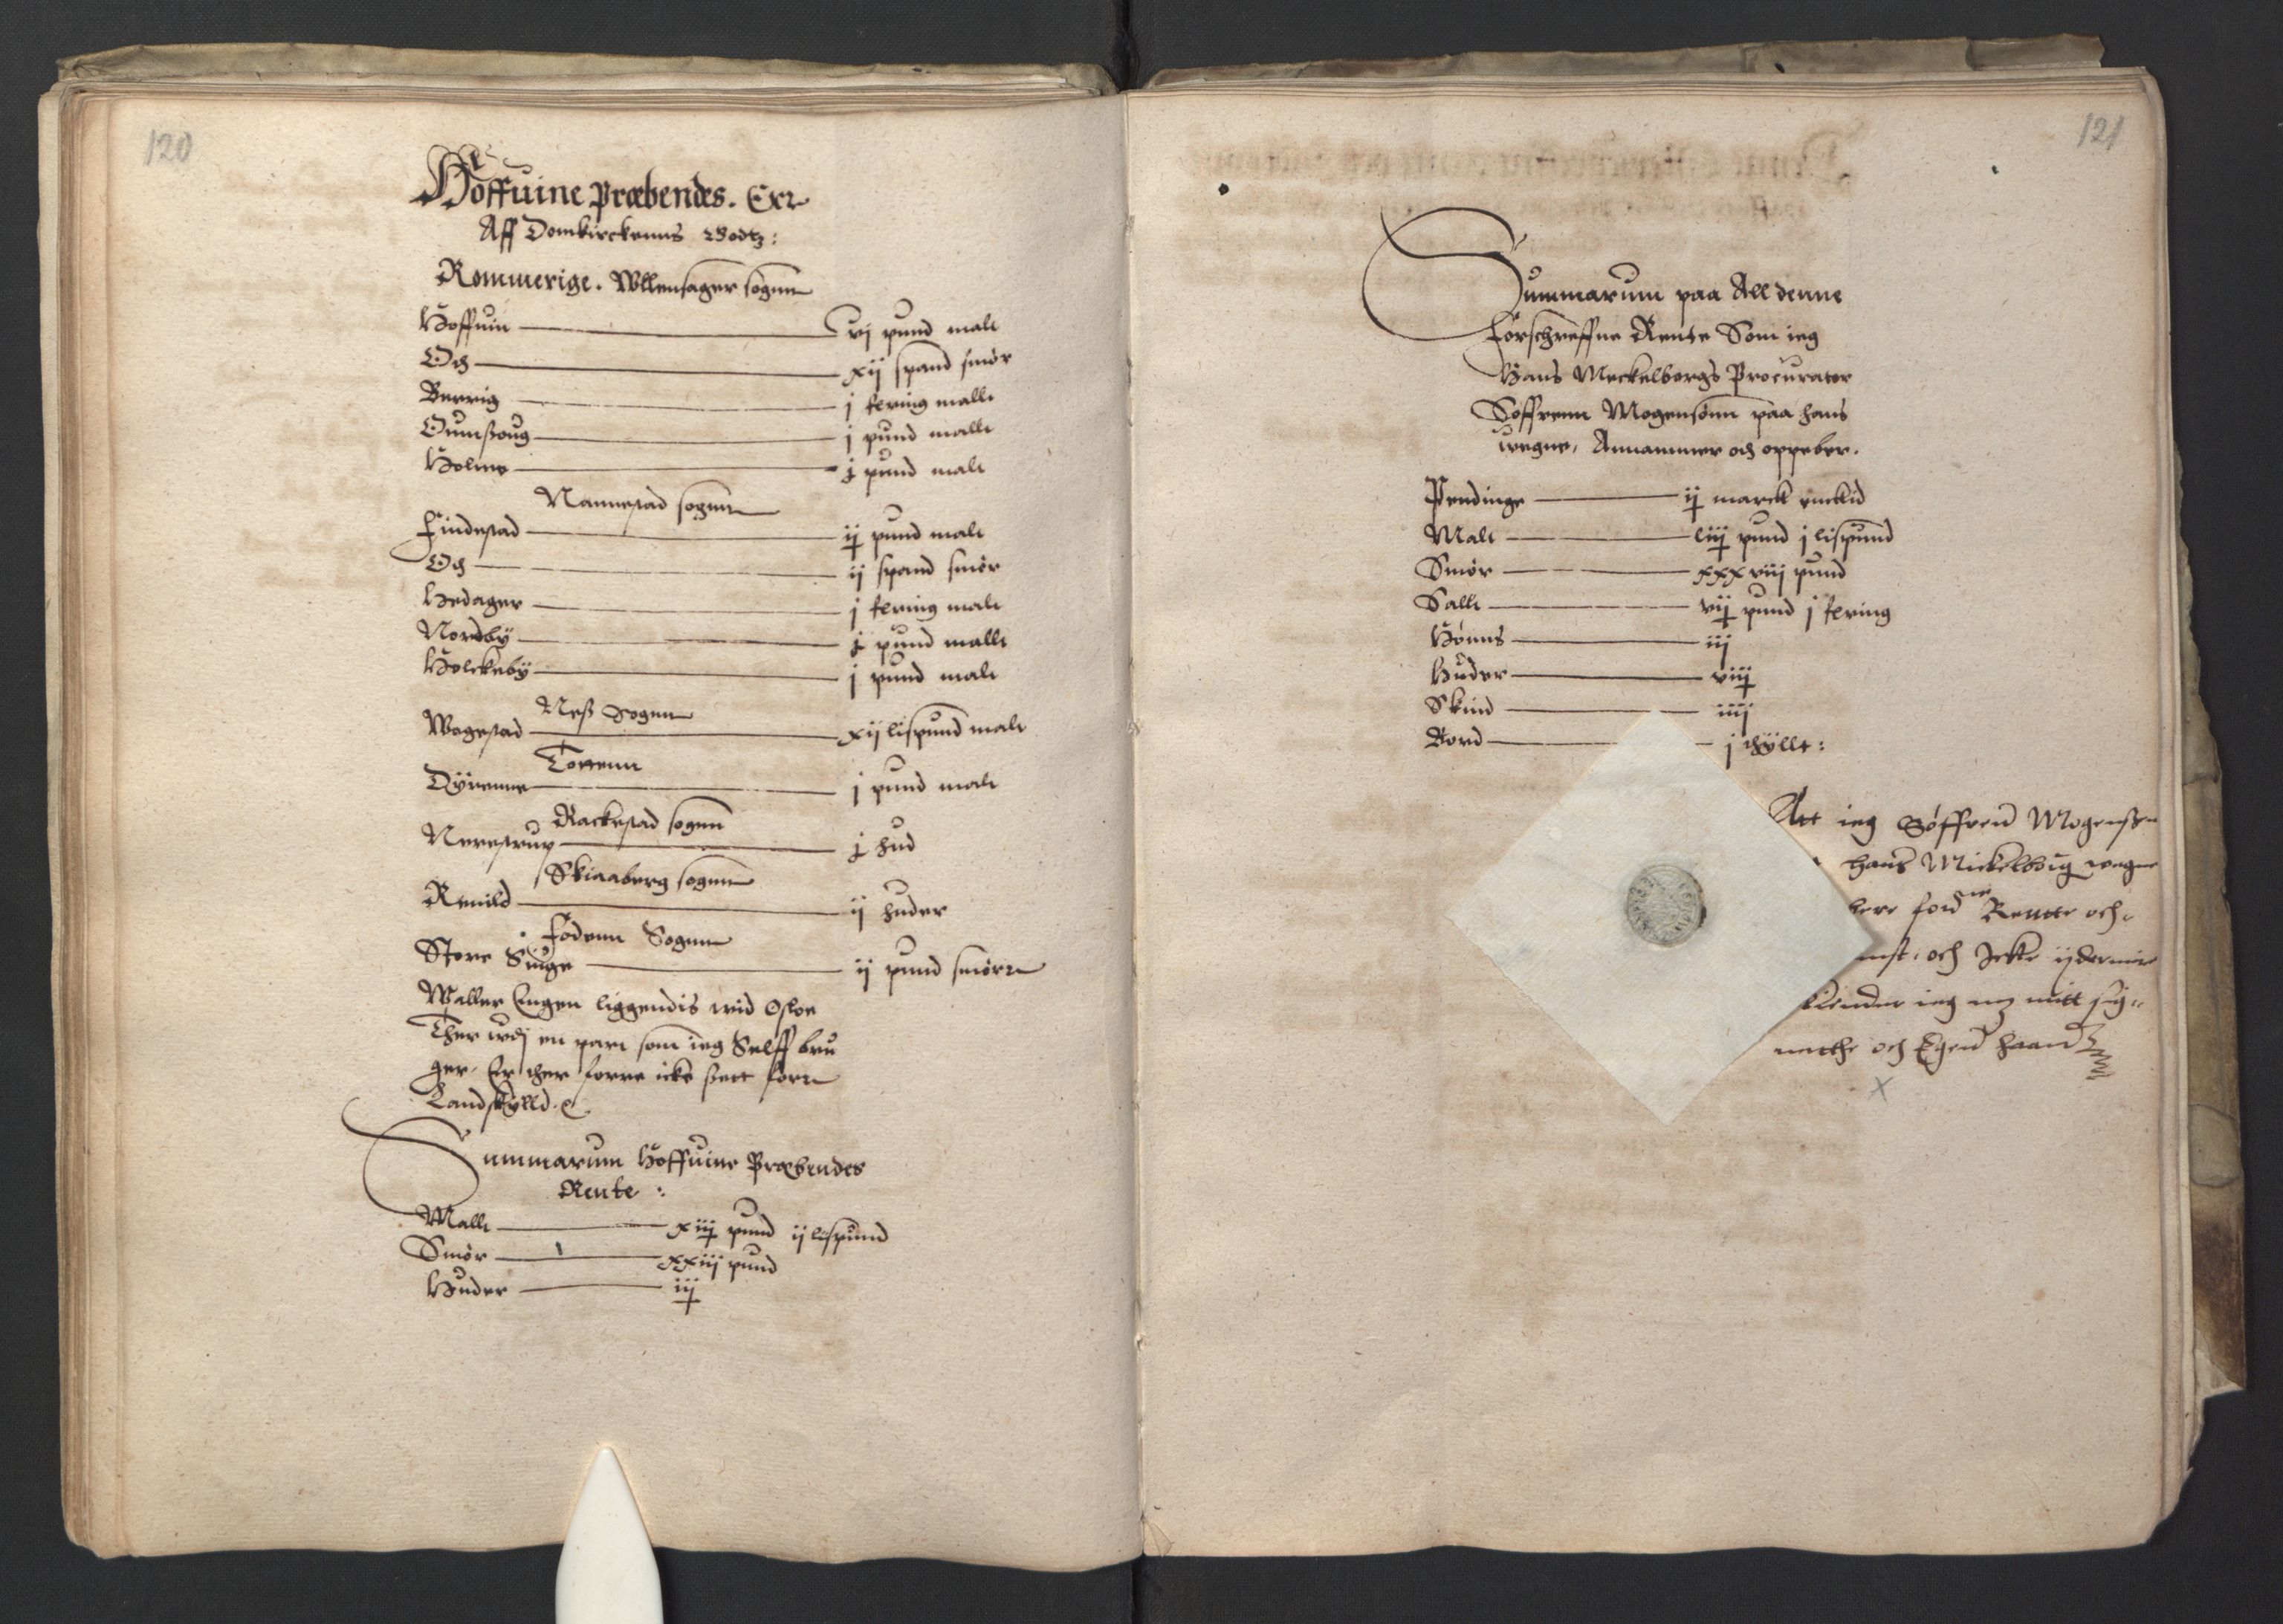 120
Hoffuine Præbendes. Err
Aff Domkirckenns Godtz:
Rommerige. Wllensager sognn
Hoffuin — vj pund malt
Och — xij spand smør
Berrig — j fering mallt
Oumßoug — j pund mallt
Holme — j pund malt
Nannestad sognn
Findestad — ij pund malt
Och — ij spand smør
Hedager — j fering malt
Nordby — j pund mallt
Holckeby — j pund malt
Neß Sognn
Wagestad — xij lispund malt
Tottenn
Dyrenne — j pund malt
Rackestad sognn
Nerestrup — j hud
Skiaaberg sognn
Remild — ij huder
Fodenn Sognn
Store Singe — ij pund smørr
Waller Engen liggendis wid Osloe
Ther wdj en part som ieg Selff bru
ger. Er ther forre icke ßett forr
Landskylld. &.
Summarum Hoffuine Præbendes
Rente:
Mallt — xiij pund ij lispund
Smør — xxiij pund
Huder — iij
121
Summarum paa All denne
forschreffne Rente Som ieg
Hans Meckelborgs Procurator
Søffrenn Mogensønn paa hans
wegne, Annammer och oppeber.
Pendinge — ij marck
Malt — liij pund j lispund
Smør — xxxviij pund
Sallt — vij pund j fering
Hønns — iij
Huder — viij
Skind — iiij
Bord — j thyllt:
Att ieg Søffrend Mogenßen
hans Mickelborg wegne
Rentte och
och Icke ydermire
kiender ieg mz mitt sig-
netthe och Egend haand